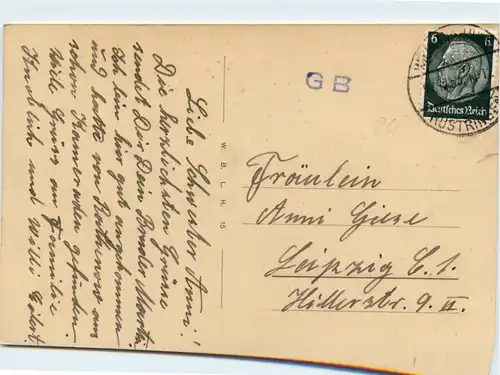 Liebe Schwester Anni!
Die herzlichsten Grüsse
sendet Dir Dein Bruder Martin
Ich bin hier gut angekommen
und hatte von Rathenow aus
schon Kameraden gefunden
Viele Grüsse an Familie
und Willi
W. B. L. H. 15
GB
6 6
Deutsches Reich
Fräulein
Anni Giese
Leipzig C. 1.
Hillerstr. 9. II.